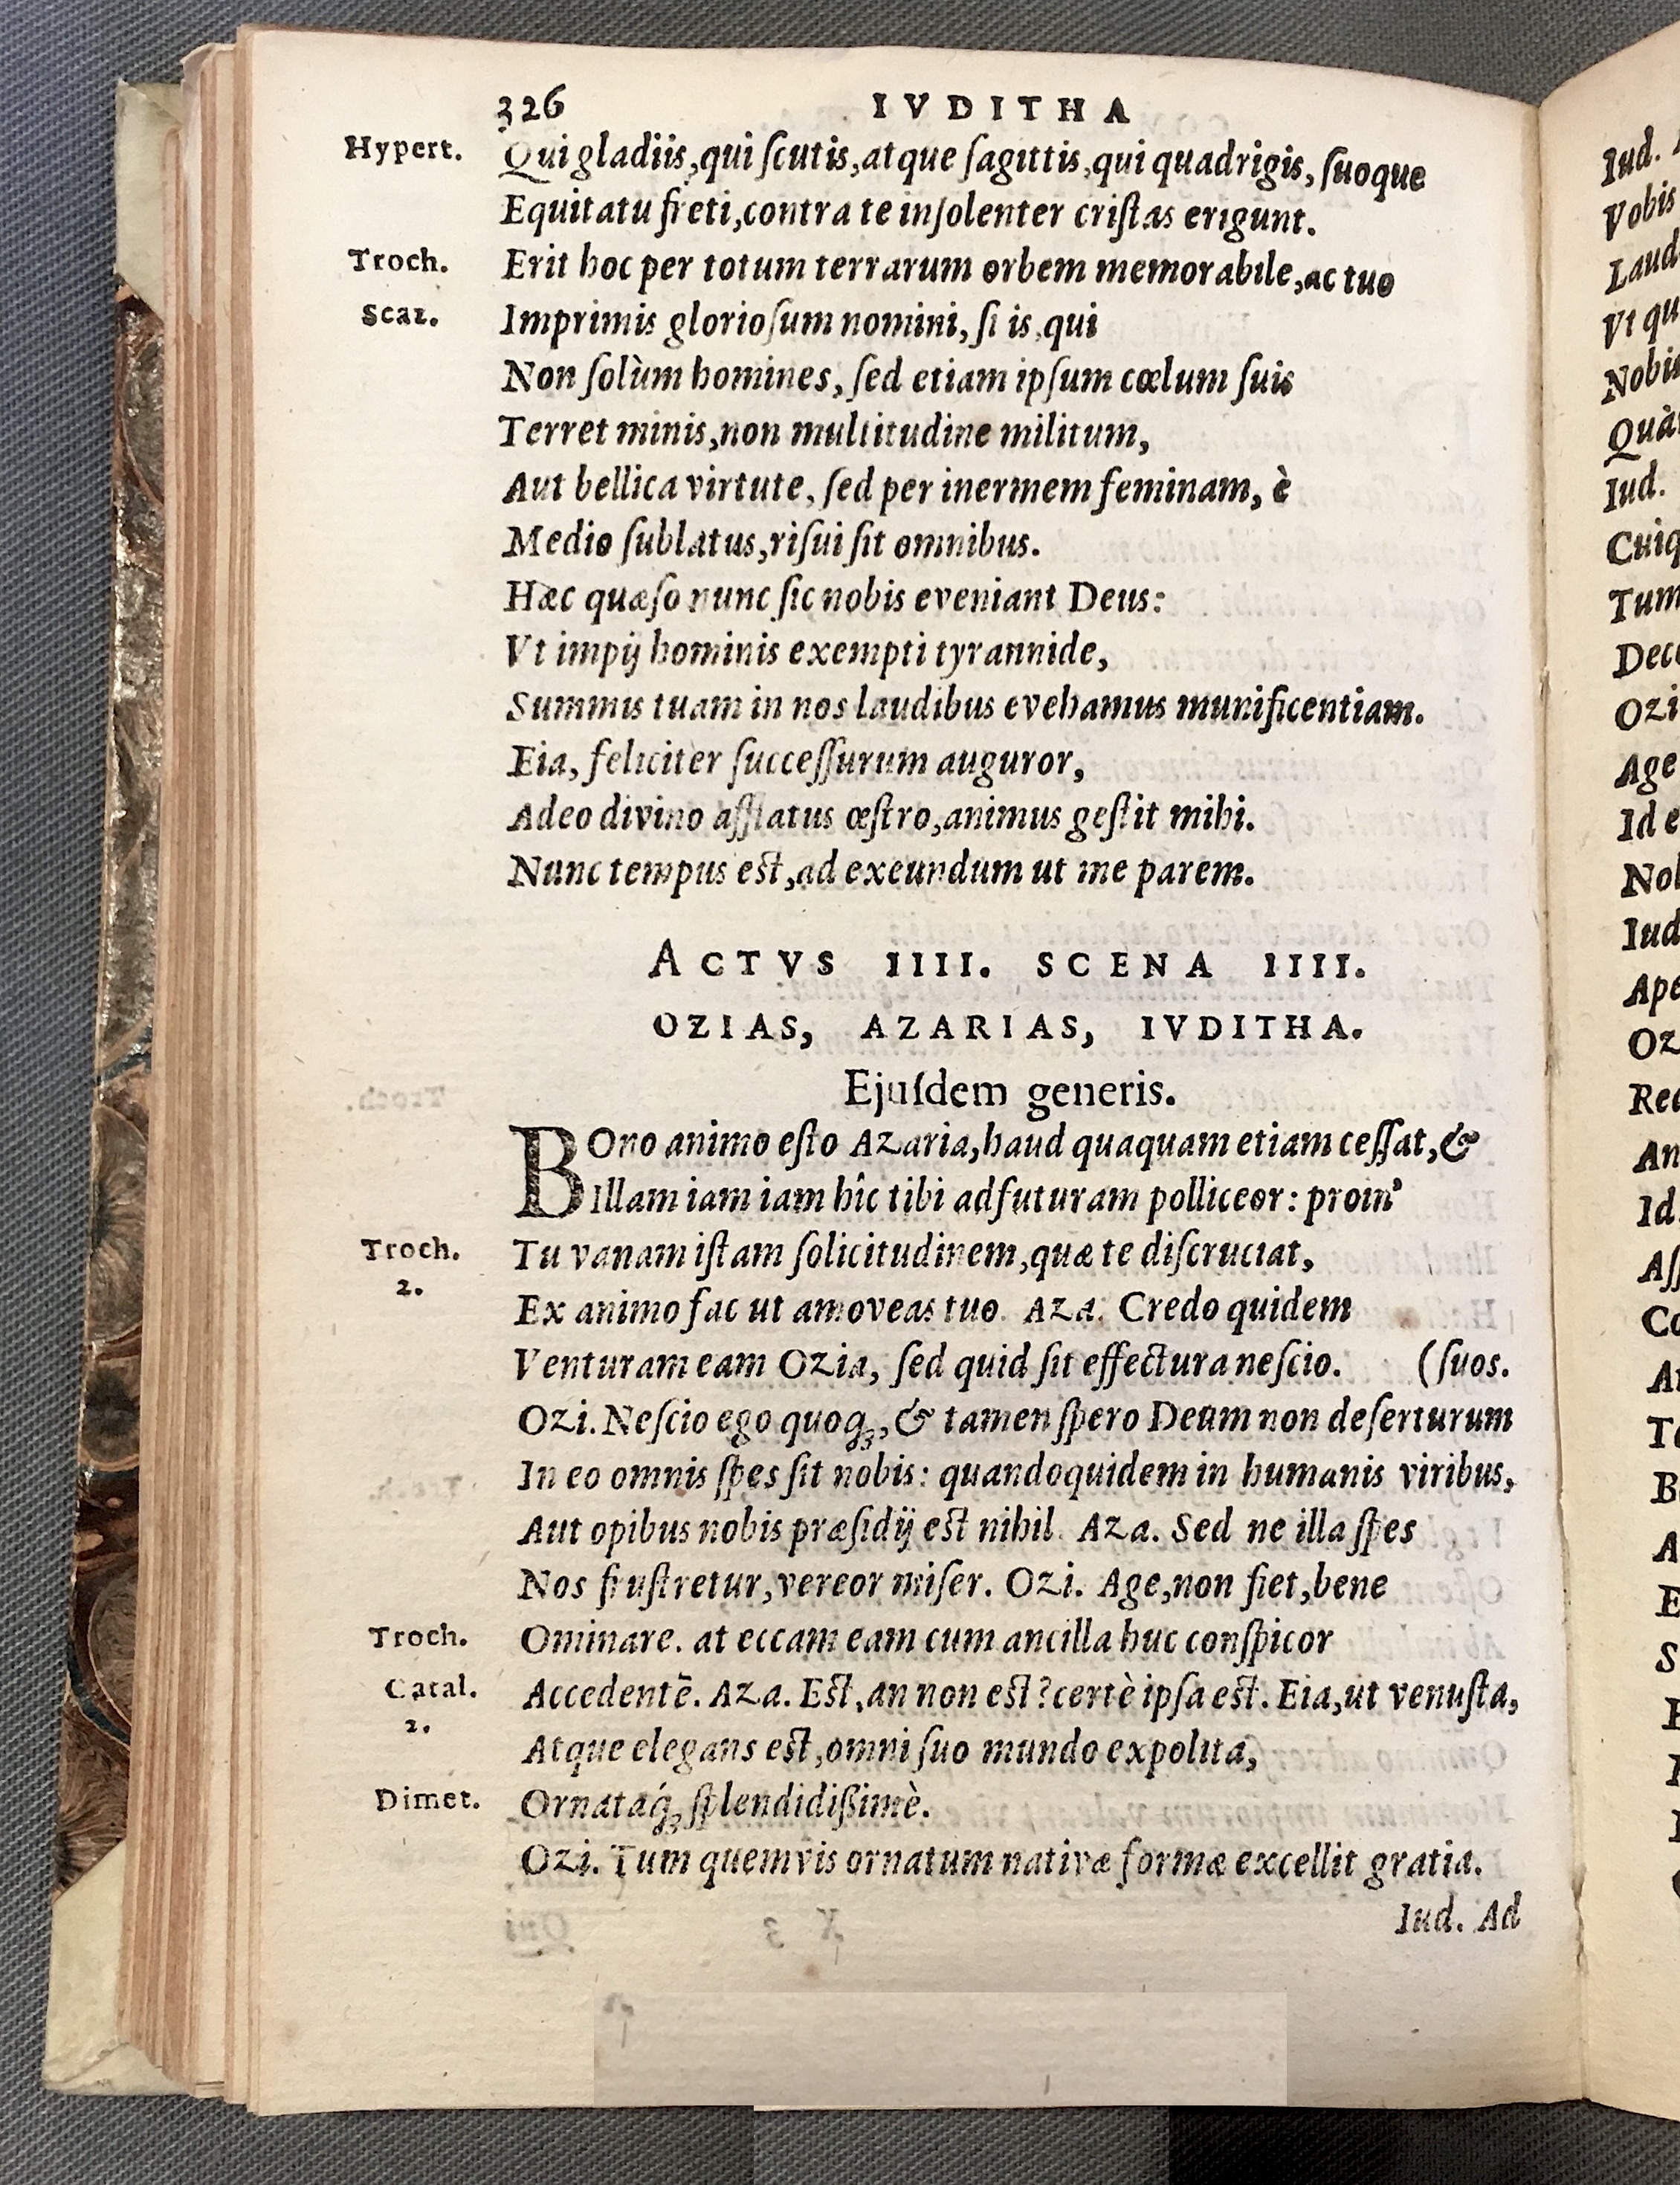 326 IVDITHA
Hypert. Qui gladiis, qui ſcutis, atque ſagittis, qui quadrigis, ſuoque
Equitatu freti, contra te inſolenter criſtas erigunt.
Troch. Erit hoc per totum terrarum orbem memorabile, ac tuo
Scaz. Imprimis glorioſum nomini, ſi is, qui
Non ſolùm homines, ſed etiam ipſum cœlum ſuis
Terret minis, non multitudine militum,
Aut bellica virtute, ſed per inermem feminam, è
Medio ſublatus, riſui ſit omnibus.
Hæc quæſo nunc ſic nobis eveniant Deus:
Vt impij hominis exempti tyrannide,
Summis tuam in nos laudibus evehamus munificentiam.
Eia, feliciter ſucceſſurum auguror,
Adeo divino afflatus œſtro, animus geſtit mihi.
Nunc tempus eſt, ad exeundum ut me parem.
ACTVS IIII. SCENA IIII.
OZIAS, AZARIAS, IVDITHA.
Ejuſdem generis.
BOno animo eſto Azaria, haud quaquam etiam ceſſat, &
Illam iam iam hîc tibi adfuturam polliceor: proin'
Troch. Tu vanam iſtam ſolicitudinem, quæ te diſcruciat,
2.
Ex animo fac ut amoveas tuo. Aza. Credo quidem
Venturam eam Ozia, ſed quid ſit effectura neſcio. (ſuos.
Ozi. Neſcio ego quoqꝫ, & tamen ſpero Deum non deſerturum
In eo omnis ſpes ſit nobis: quandoquidem in humanis viribus,
Aut opibus nobis præſidij eſt nihil. Aza. Sed ne illa ſpes
Nos fruſtretur, vereor miſer. Ozi. Age, non fiet, bene
Troch. Ominare. at eccam eam cum ancilla huc conſpicor
Catal. Accedentē. Aza. Eſt, an non eſt? certè ipſa eſt. Eia, ut venuſta,
2.
Atque elegans eſt, omni ſuo mundo expolita,
Dimet. Ornataq́ꝫ ſplendidißimè.
Ozi. Tum quemvis ornatum nativæ formæ excellit gratia.
Iud. Ad
Iud.
Vobis
Vt qu
Iud.
Tum
Age
Id e